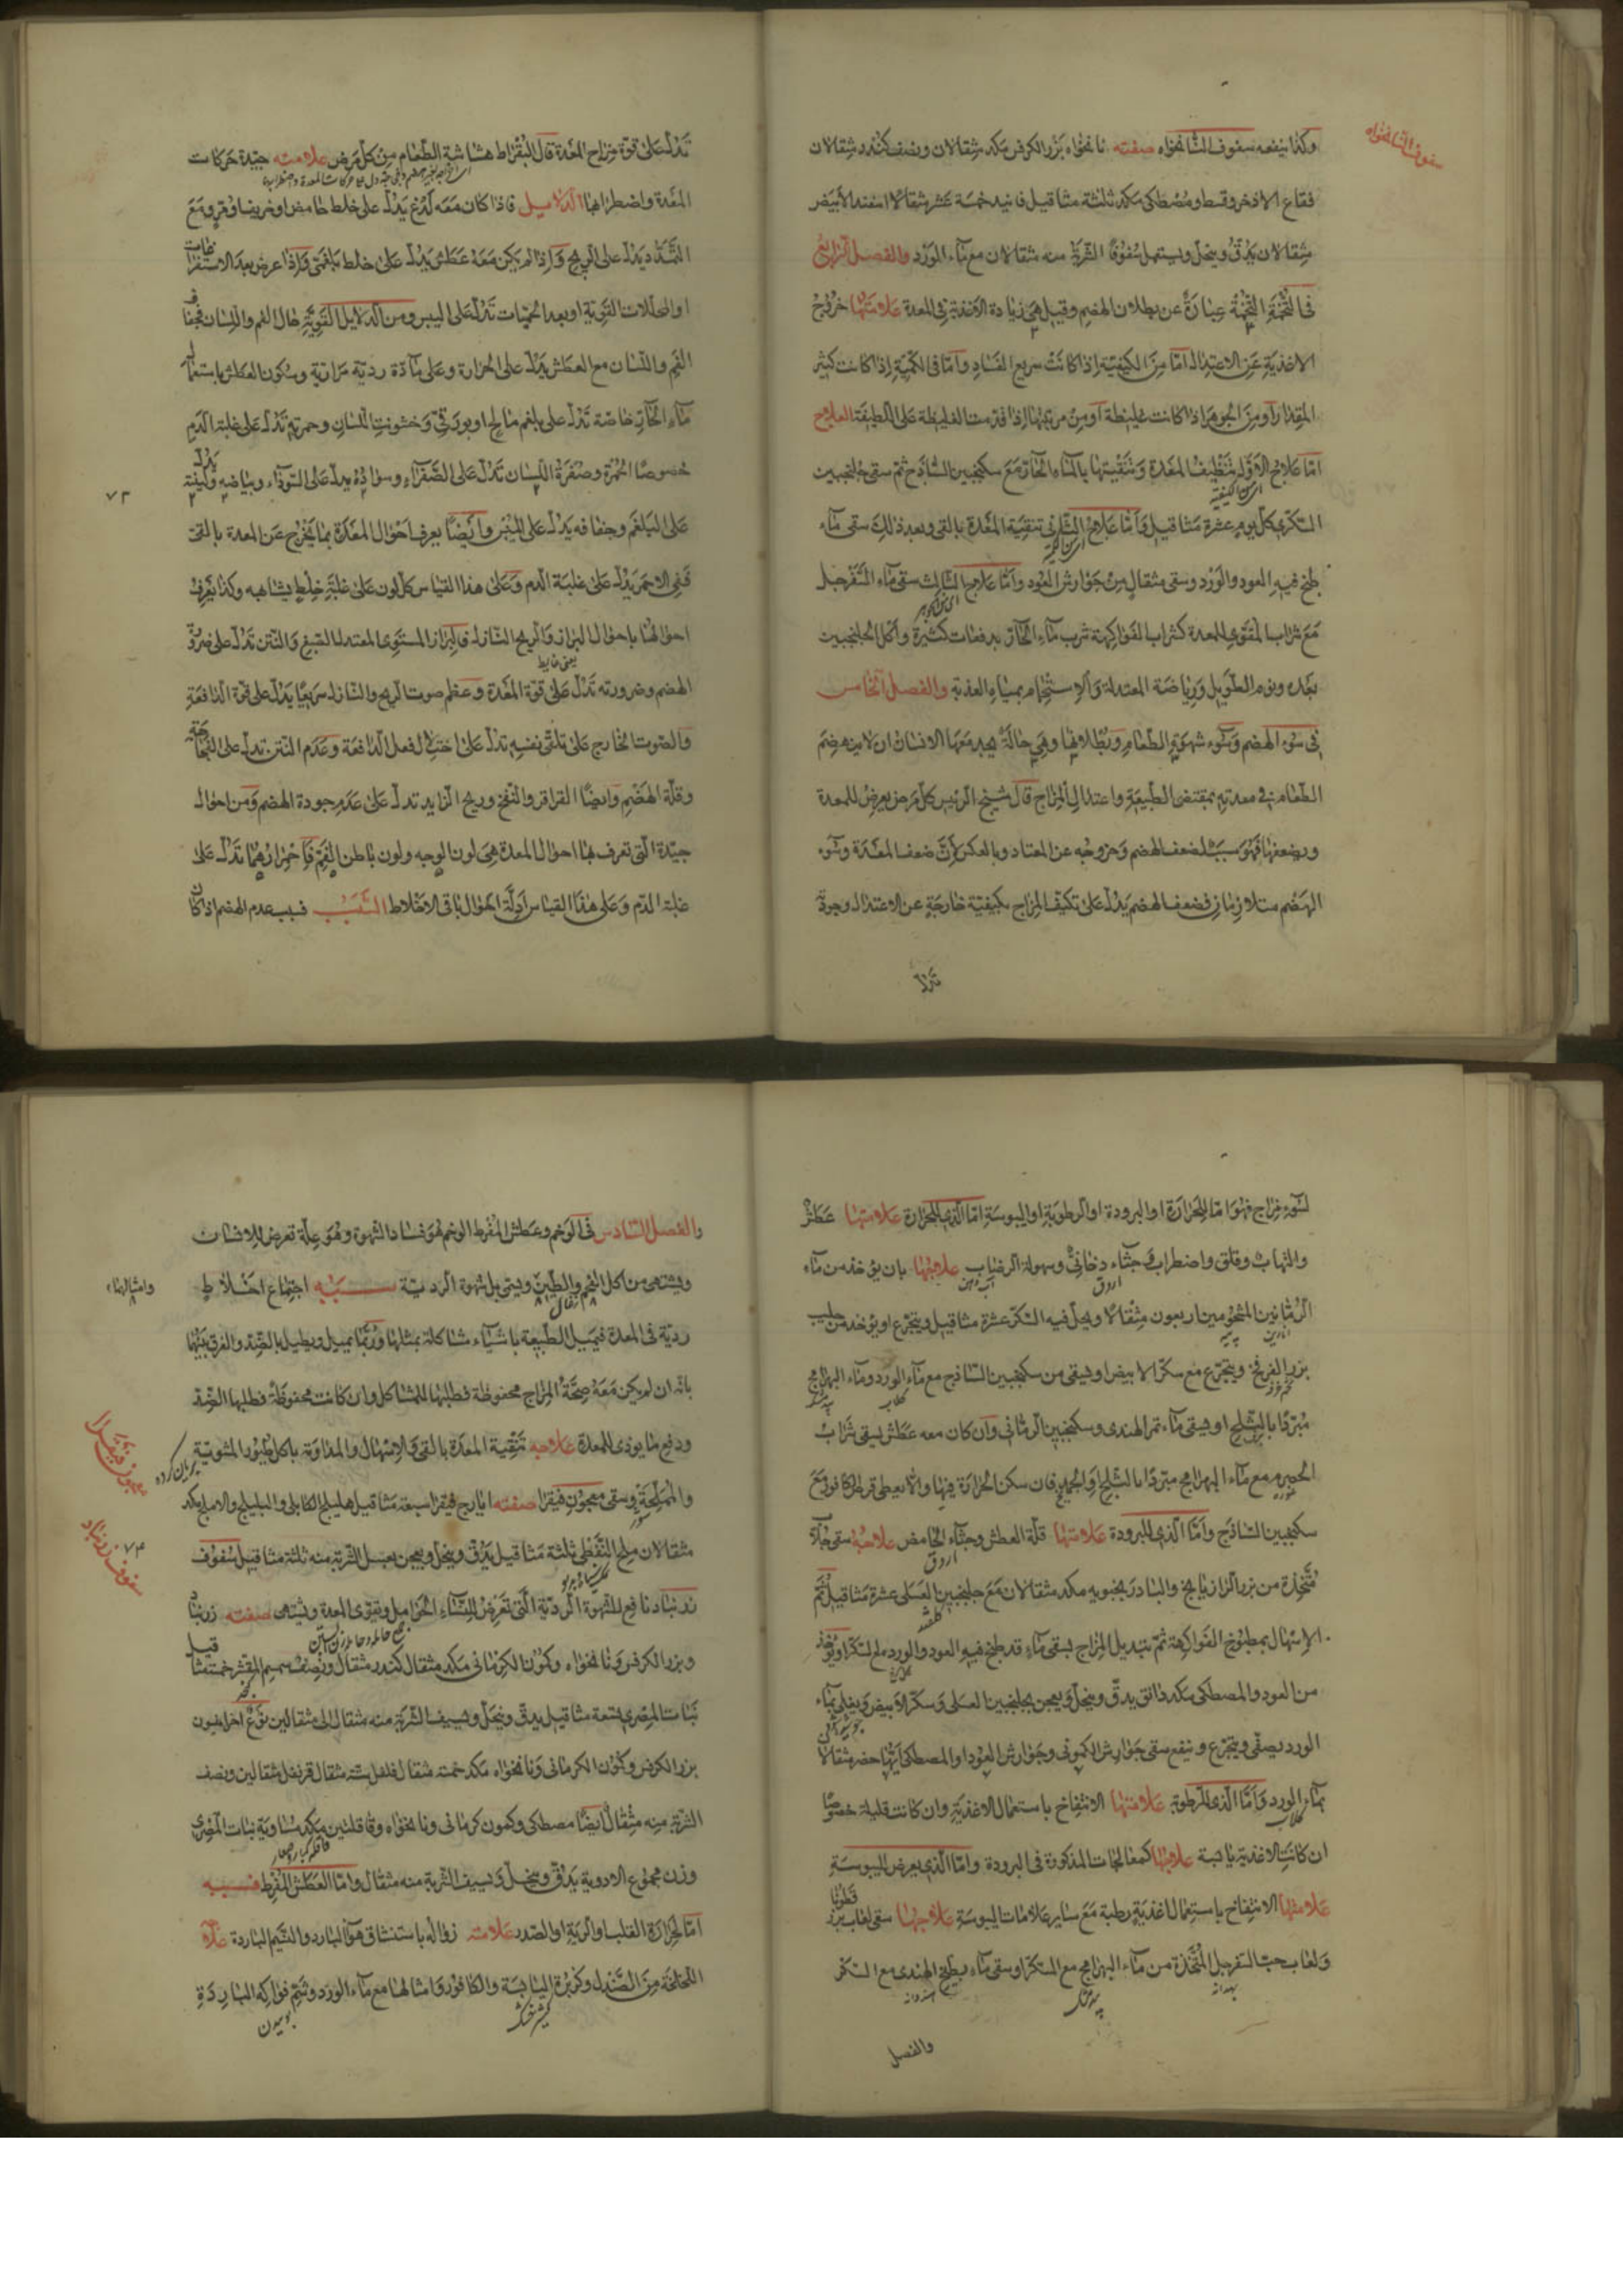 سفوف النانخواه
وكذا ينفعه سفوف النانخواه صفته نانخواه بزر الكرفس مكد مثقالان ونصف كندر مثقالان
فقاع الاذخر وقسط ومصطكى مكد ثلثة مثاقيل فانيد خمسة عشر مثقالا اسفند الابيض
مثقالان يدق وينخل ويستعمل سفوفا الشربة منه مثقالان مع ماء الورد والفصل الرابع
فى التخمة التخمة عبارة عن بطلان الهضم وقيل هى زيادة الاغذية فى المعدة علامتها خروج
الاغذية عن الاعتدال اما من الكيفية اذا كانت سريع الفساد واما فى الكمية اذا كانت كثير
المقدار او من الجوهر اذا كانت غليظة او من مرتبتها اذا قدمت الغليظة على اللطيفة العلاج
اما علاج الاول تنظيف المعدة وتنقيتها بالماء الحار مع سكنجبين الساذج ثم سقى جلنجبين
اى من الكيفية
السكرى كل يوم عشرة مثاقيل واما علاج الثانى تنقية المعدة بالقى وبعد ذلك سقى ماء
اى من الكمية
طبخ فيه العود والورد وسقى مثقال من جوارش العود واما علاج الثالث سقى ماء السفرجل
اى من الجوهر
مع شراب المقوى للمعدة كشراب الفواكهة شرب ماء الحار بدفعات كثيرة واكل الجلنجبين
بعده ونوم الطويل ورياضة المعتدلة والاستحمام بمياه العذبة والفصل الخامس
فى سوء الهضم وسوء شهوة الطعام وبطلانها وهى حالة يجد معها الانسان ان لا ينهضم
الطعام فى معدته بمقتضى الطبيعة واعتدال المزاج قال شيخ الرئيس كل مرض يعرض للمعدة
ويضعفها فهو سبب لضعف الهضم وخروجه عن المعتاد وبالعكس لان ضعف المعدة وسوء
الهضم متلازمان فضعف الهضم يدل على تكيف المزاج بكيفية خارجة عن الاعتدال وجودة
تدل
تدل على قوة مزاج المعدة قال البقراط هشاشة الطعام من كل مرض علامته جيدة حركات
المعدة واضطرابها الدلايل فاذا كان معه لدغ يدل على خلط حامض او حريف او مرى ومع
التمدد يدل على الريح واذا لم يكن معه عطش يدل على خلط بلغمى واذا عرض بعد الاستفراغات
او التحللات القوية او بعد الحميات تدل على اليبس ومن الدلايل القوية حال الفم واللسان فجفاف
الفم واللسان مع العطش يدل على الحرارة وعلى مادة ردية مرارية وسكون العطش باستعمال
ماء الحار خاصة تدل على بلغم مالح او بورقى وخشونت اللسان وحمرته تدل على غلبة الدم
خصوصا الحمرة وصفرة اللسان تدل على الصفراء وسواده يدل على السوداء وبياضه ولينته يدل
٧٣
على البلغم وجفافه يدل على اليبس وايضا يعرف احوال المعدة بما يخرج عن المعدة بالقى
فقى الاحمر يدل على غلبة الدم وعلى هذا القياس كل لون على غلبة خلط يشابهه وكذا يعرف
احوالها باحوال البراز والريح النازل فالبراز المستوى المعتدل الصبغ والنتن تدل على
يعنى غايط
الهضم وضرورته تدل على قوة المعدة وعظم صوت الريح والنازل سريعا يدل على قوة الدافعة
والصوت الخارج على تدل على الفعل الدافعة وعدم النتن تدل على الفجاجة
وقلة الهضم وايضا القراقر والنفخ وريح الزايد تدل على عدم جودة الهضم ومن احوال
جيدة التى تعرف بها احوال المعدة هى لون الوجه ولون باطن الفم فاحمرارهما تدل على
غلبة الدم وعلى هذا القياس ادلة احوال باقى الاخلاط السبب فسبب عدم الهضم اذا كان
لسوء مزاج فهو اما للحرارة او البرودة او الرطوبة او اليبوسة اما الذى للحرارة علامتها عطش
والتهاب وقلق واضطراب وجشاء دخانى وسهولة الرضاب علاجها بان يؤخذ من ماء
اروق آب دهن
الرمانين المشحومين اربعون مثقالا ويحل فيه السكر عشرة مثاقيل ويتجرع او يؤخذ من حليب
انارين پيه
بزر الفرفخ ويتجرع مع سكر الابيض ويسقى من سكنجبين الساذج مع ماء الورد وماء البهرامج
گلاب بيدمشك
مبردا بالثلج او يسقى ماء تمر الهندى وسكنجبين الرمانى وان كان معه عطش يسقى شراب
الحصرم مع ماء البهرامج مبردا بالثلج او الجمد فان سكن الحرارة فبها والا يعطى قرص الكافور مع
سكنجبين الساذج واما الذى للبرودة علامتها قلة العطش وجشاء الحامض علاجه سقى جلاب
اروق
متخذة من بزر الرازيانج والبادرنجبويه مكد مثقالان مع جلنجبين العسلى عشرة مثاقيل ثم
الاسهال بمطبوخ الفواكهة ثم تبديل المزاج بسقى ماء قد طبخ فيه العود والورد مع السكر او يؤخذ
من العود والمصطكى مكد دانق يدق وينخل ويعجن بجلنجبين العسلى وسكر الابيض ويغلى بماء
الورد يصفى ويتجرع وينفع سقى جوارش الكمونى وجوارش العود او المصطكى ايها حضر مثقالا
بماء الورد واما الذى للرطوبة علامتها الانتفاخ باستعمال الاغذية وان كانت قليلة خصوصا
گلاب
ان كانت الاغذية يابسة علاجها كمعالجات المذكورة فى البرودة واما الذى يعرض لليبوسة
علامتها الانتفاخ باستعمال اغذية رطبة مع ساير علامات اليبوسة علاجها سقى لعاب بزر قطونا
ولعاب حب السفرجل المتخذة من ماء البهرامج مع السكر او سقى ماء بطيخ الهندى مع السكر
بهدانه بيدمشك هندوانه
والفصل
والفصل السادس فى الوخم وعطش المفرط الوخم هو فساد الشهوة وهو علة تعرض للانسان
ويشتهى من اكل الفحم والطين ويشتمل شهوة الردية سببه اجتماع اخلاط
وامثالهما
ردية فى المعدة فيميل الطبيعة باشياء مشاكلة بمثلها وربما يميل ويطيل بالضد والفرق بينهما
بانه ان لم يكن معه صحة المزاج محفوظة فطلبها للمشاكل وان كانت محفوظة فطلبها الضد
ودفع ما يؤدى للمعدة علاجه تنقية المعدة بالقى والاسهال والمداوة باكل طيور المشوية
بريان كرده
معجون فيقرا
والمملحة وسقى معجون فيقرا صفته ايارج فيقرا سبعة مثاقيل هليلج الكابلى والبليلج والاملج مكد
مثقالان ملح النفطى ثلثة مثاقيل يدق وينخل ويعجن بعسل الشربة منه ثلثة مثاقيل سفوف
٧٤
سفوف زرنباد
زرنباد نافع للشهوة الردية التى تعرض للنساء الحوامل ويقوى المعدة ويشتهى صفته زرنباد
وبزر الكرفس ونانخواه وكمون الكرمانى مكد مثقال كندر مثقال ونصف سمسم المقشر خمسة مثاقيل
نبات المصرى تسعة مثاقيل يدق وينخل ويسف الشربة منه مثقال الى مثقالين نوع اخر افيون
بزر الكرفس وكمون الكرمانى ونانخواه مكد خمسة مثقال فلفل ستة مثقال قرنفل مثقالين ونصف
الشربة منه مثقال ايضا مصطكى وكمون كرمانى ونانخواه وقاقلتين مكد مساوية نبات المصرى
قاقله كبار وصغار
وزن مجموع الادوية يدق وينخل ويسف الشربة منه مثقال واما العطش المفرط فسببه
اما لحرارة القلب والرية او الصدر علامته زواله باستنشاق هواء البارد والنسيم الباردة علاجه
اللخلخة من الصندل وكزبرة اليابسة والكافور وامثالها مع ماء الورد وشم فواكه الباردة
گشنيز خشك بوييدن